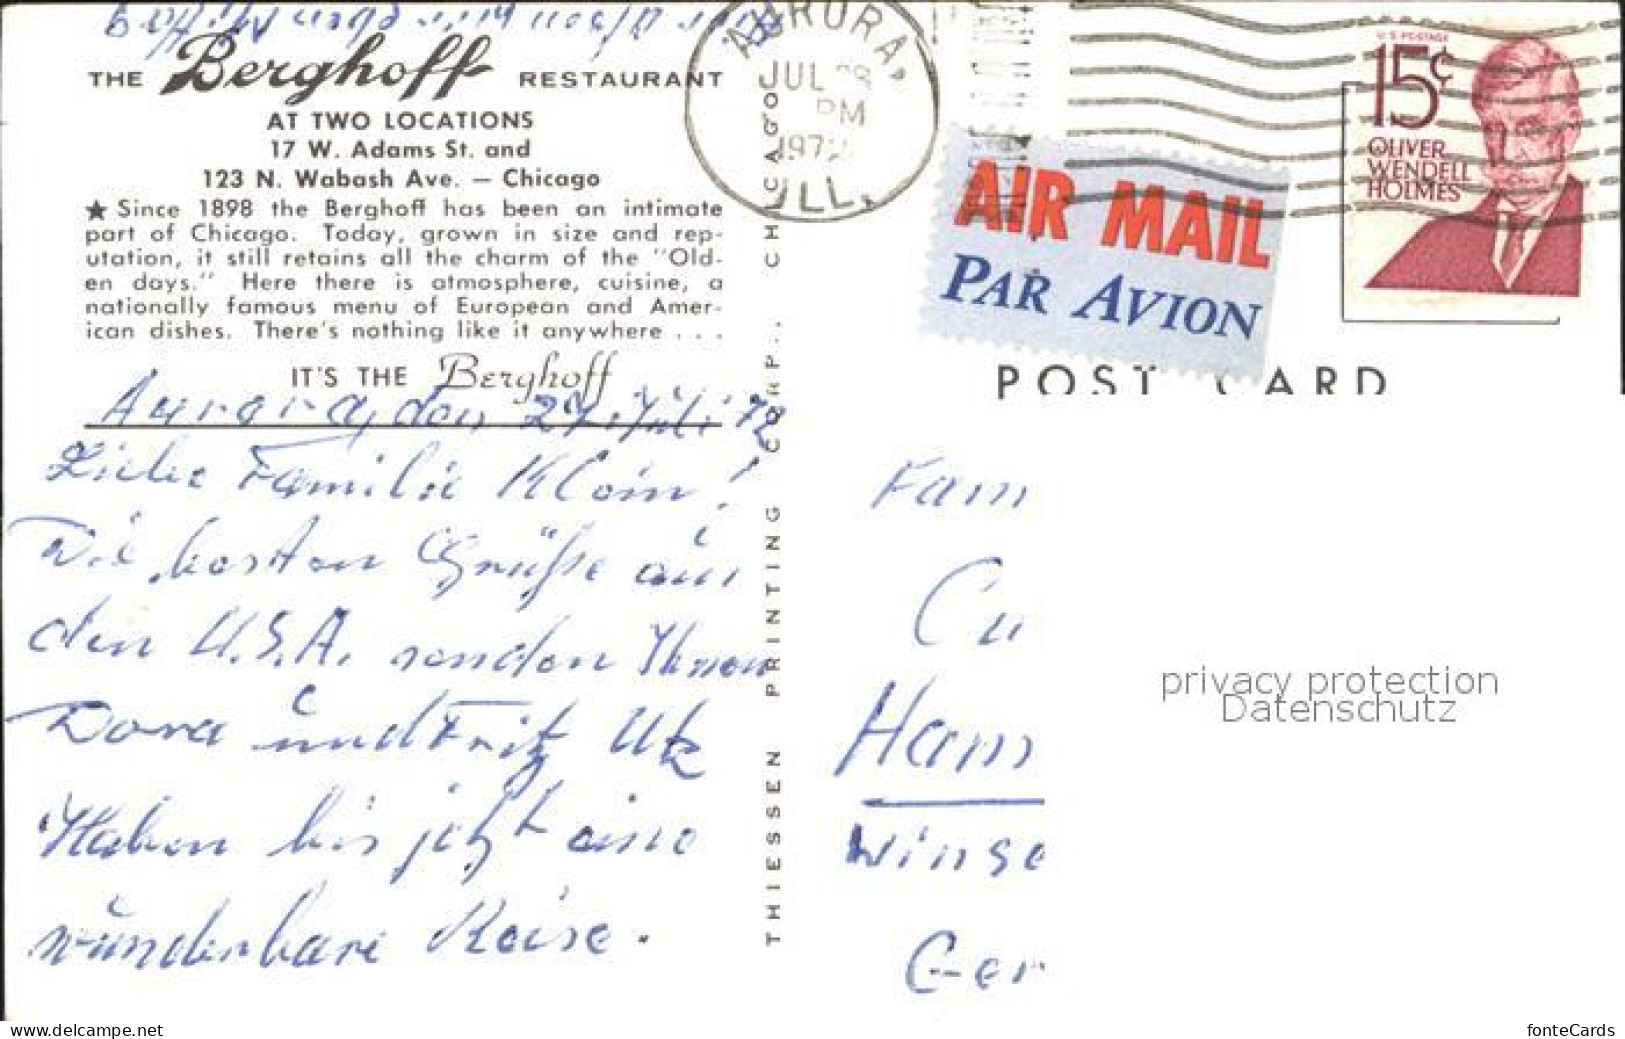 THE Berghoff RESTAURANT
AT TWO LOCATIONS
17 W. Adams St. and
123 N. Wabash Ave. — Chicago
★ Since 1898 the Berghoff has been an intimate
part of Chicago. Today, grown in size and rep-
utation, it still retains all the charm of the "Old-
en days." Here there is atmosphere, cuisine, a
nationally famous menu of European and Amer-
ican dishes. There's nothing like it anywhere . . .
IT'S THE Berghoff
Aurora, den 27. Juli 72
Liebe Familie Klein!
Die besten Grüße aus
den U.S.A. senden Ihnen
Dora und Fritz Utz
Haben bis jetzt eine
wunderbare Reise.
THIESSEN PRINTING CORP., CHICAGO
AURORA,
JUL 28
PM
1972
ILL.
AIR MAIL
PAR AVION
U.S. POSTAGE
15¢
OLIVER
WENDELL
HOLMES
POST CARD
Fam
Cu
Ham
Winse
Ger
privacy protection
Datenschutz
www.delcampe.net
fonteCards